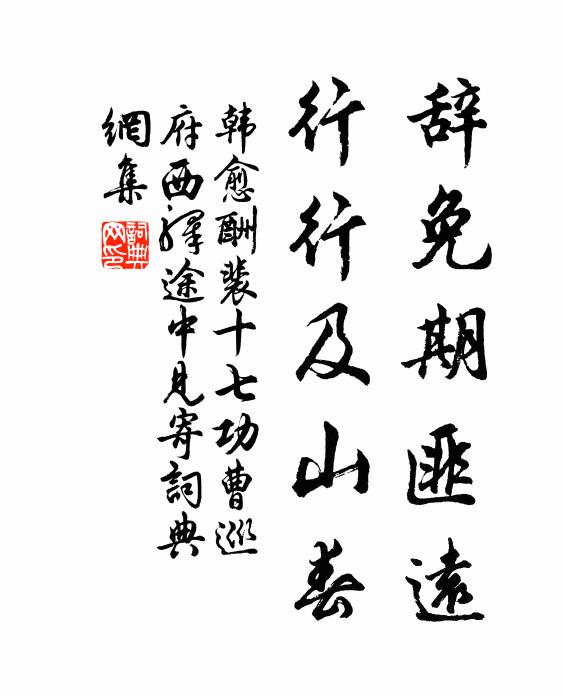 辞免期匪遠
行行及山春
韩愈酬裴十七功曹巡
府西驛途中見寄詞典
網集
詞典
网印